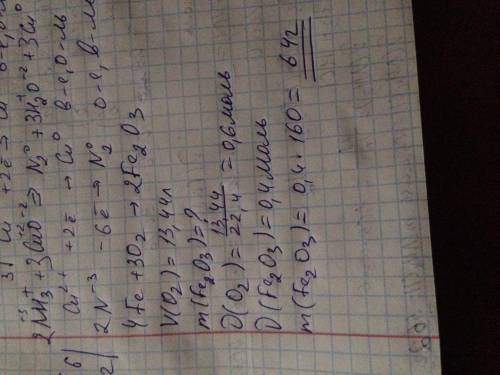 3) Cu +2ē → Cu
б) 2N⁻³H₃⁺ + 3Cu⁺²O⁻² ⇒ N₂⁰ + 3H₂⁺O⁻² + 3Cu⁰
Cu²⁺ +2ē → Cu⁰ в-е, о-ль
2N⁻³ -6ē → N₂⁰ о-е, в-ль
2) 4Fe + 3O₂ → 2Fe₂O₃
V(O₂) = 13,44л
m(Fe₂O₃) = ?
∂(O₂) = 13,44/22,4 = 0,6моль
∂(Fe₂O₃) = 0,4моль
m(Fe₂O₃) = 0,4 · 160 = 64г